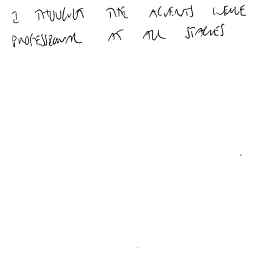 I THOUGHT THE AGENTS WERE
PROFESSIONAL AT ALL STAGES